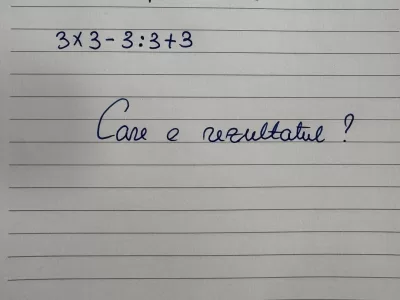 3×3-3:3+3
Care e rezultatul?